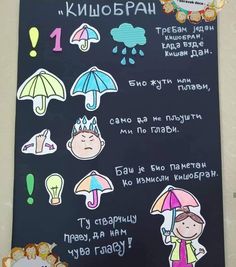 „КИШОБРАН
! 1
ТРЕБАМ ЈЕДАН
КИШОБРАН,
КАДА БУДЕ
КИШАН ДАН.
БИО ЖУТИ ИЛИ
ПЛАВИ,
САМО ДА НЕ ПЉУШТИ
МИ ПО ГЛАВИ.
!
БАШ ЈЕ БИО ПАМЕТАН
КО ИЗМИСЛИ КИШОБРАН.
ТУ СТВАРЧИЦУ
ПРАВУ, ДА НАМ
ЧУВА ГЛАВУ!